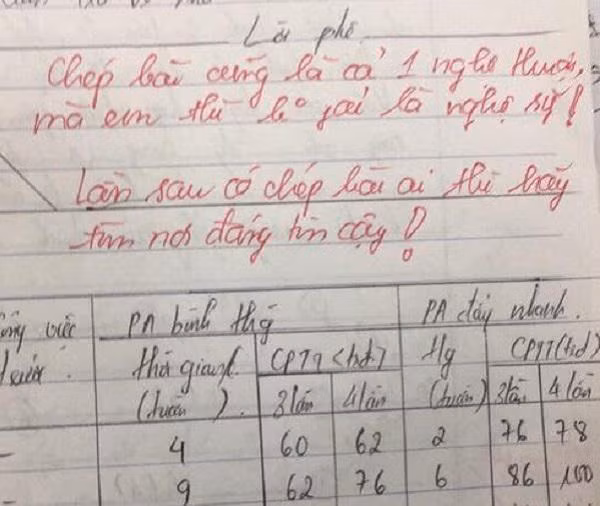 Lời phê
Chép bài cũng là cả 1 nghệ thuật,
mà em thì k° phải là nghệ sỹ!
Lần sau có chép bài ai thì hãy
tìm nơi đáng tin cậy!
việc PA bình thg PA đẩy nhanh.
thời gian CPTT (trđ) tg CPTT (trđ)
(tuần) 3 lần 4 lần (tuần) 3 lần 4 lần
- 4 60 62 2 76 78
- 9 62 76 6 86 100